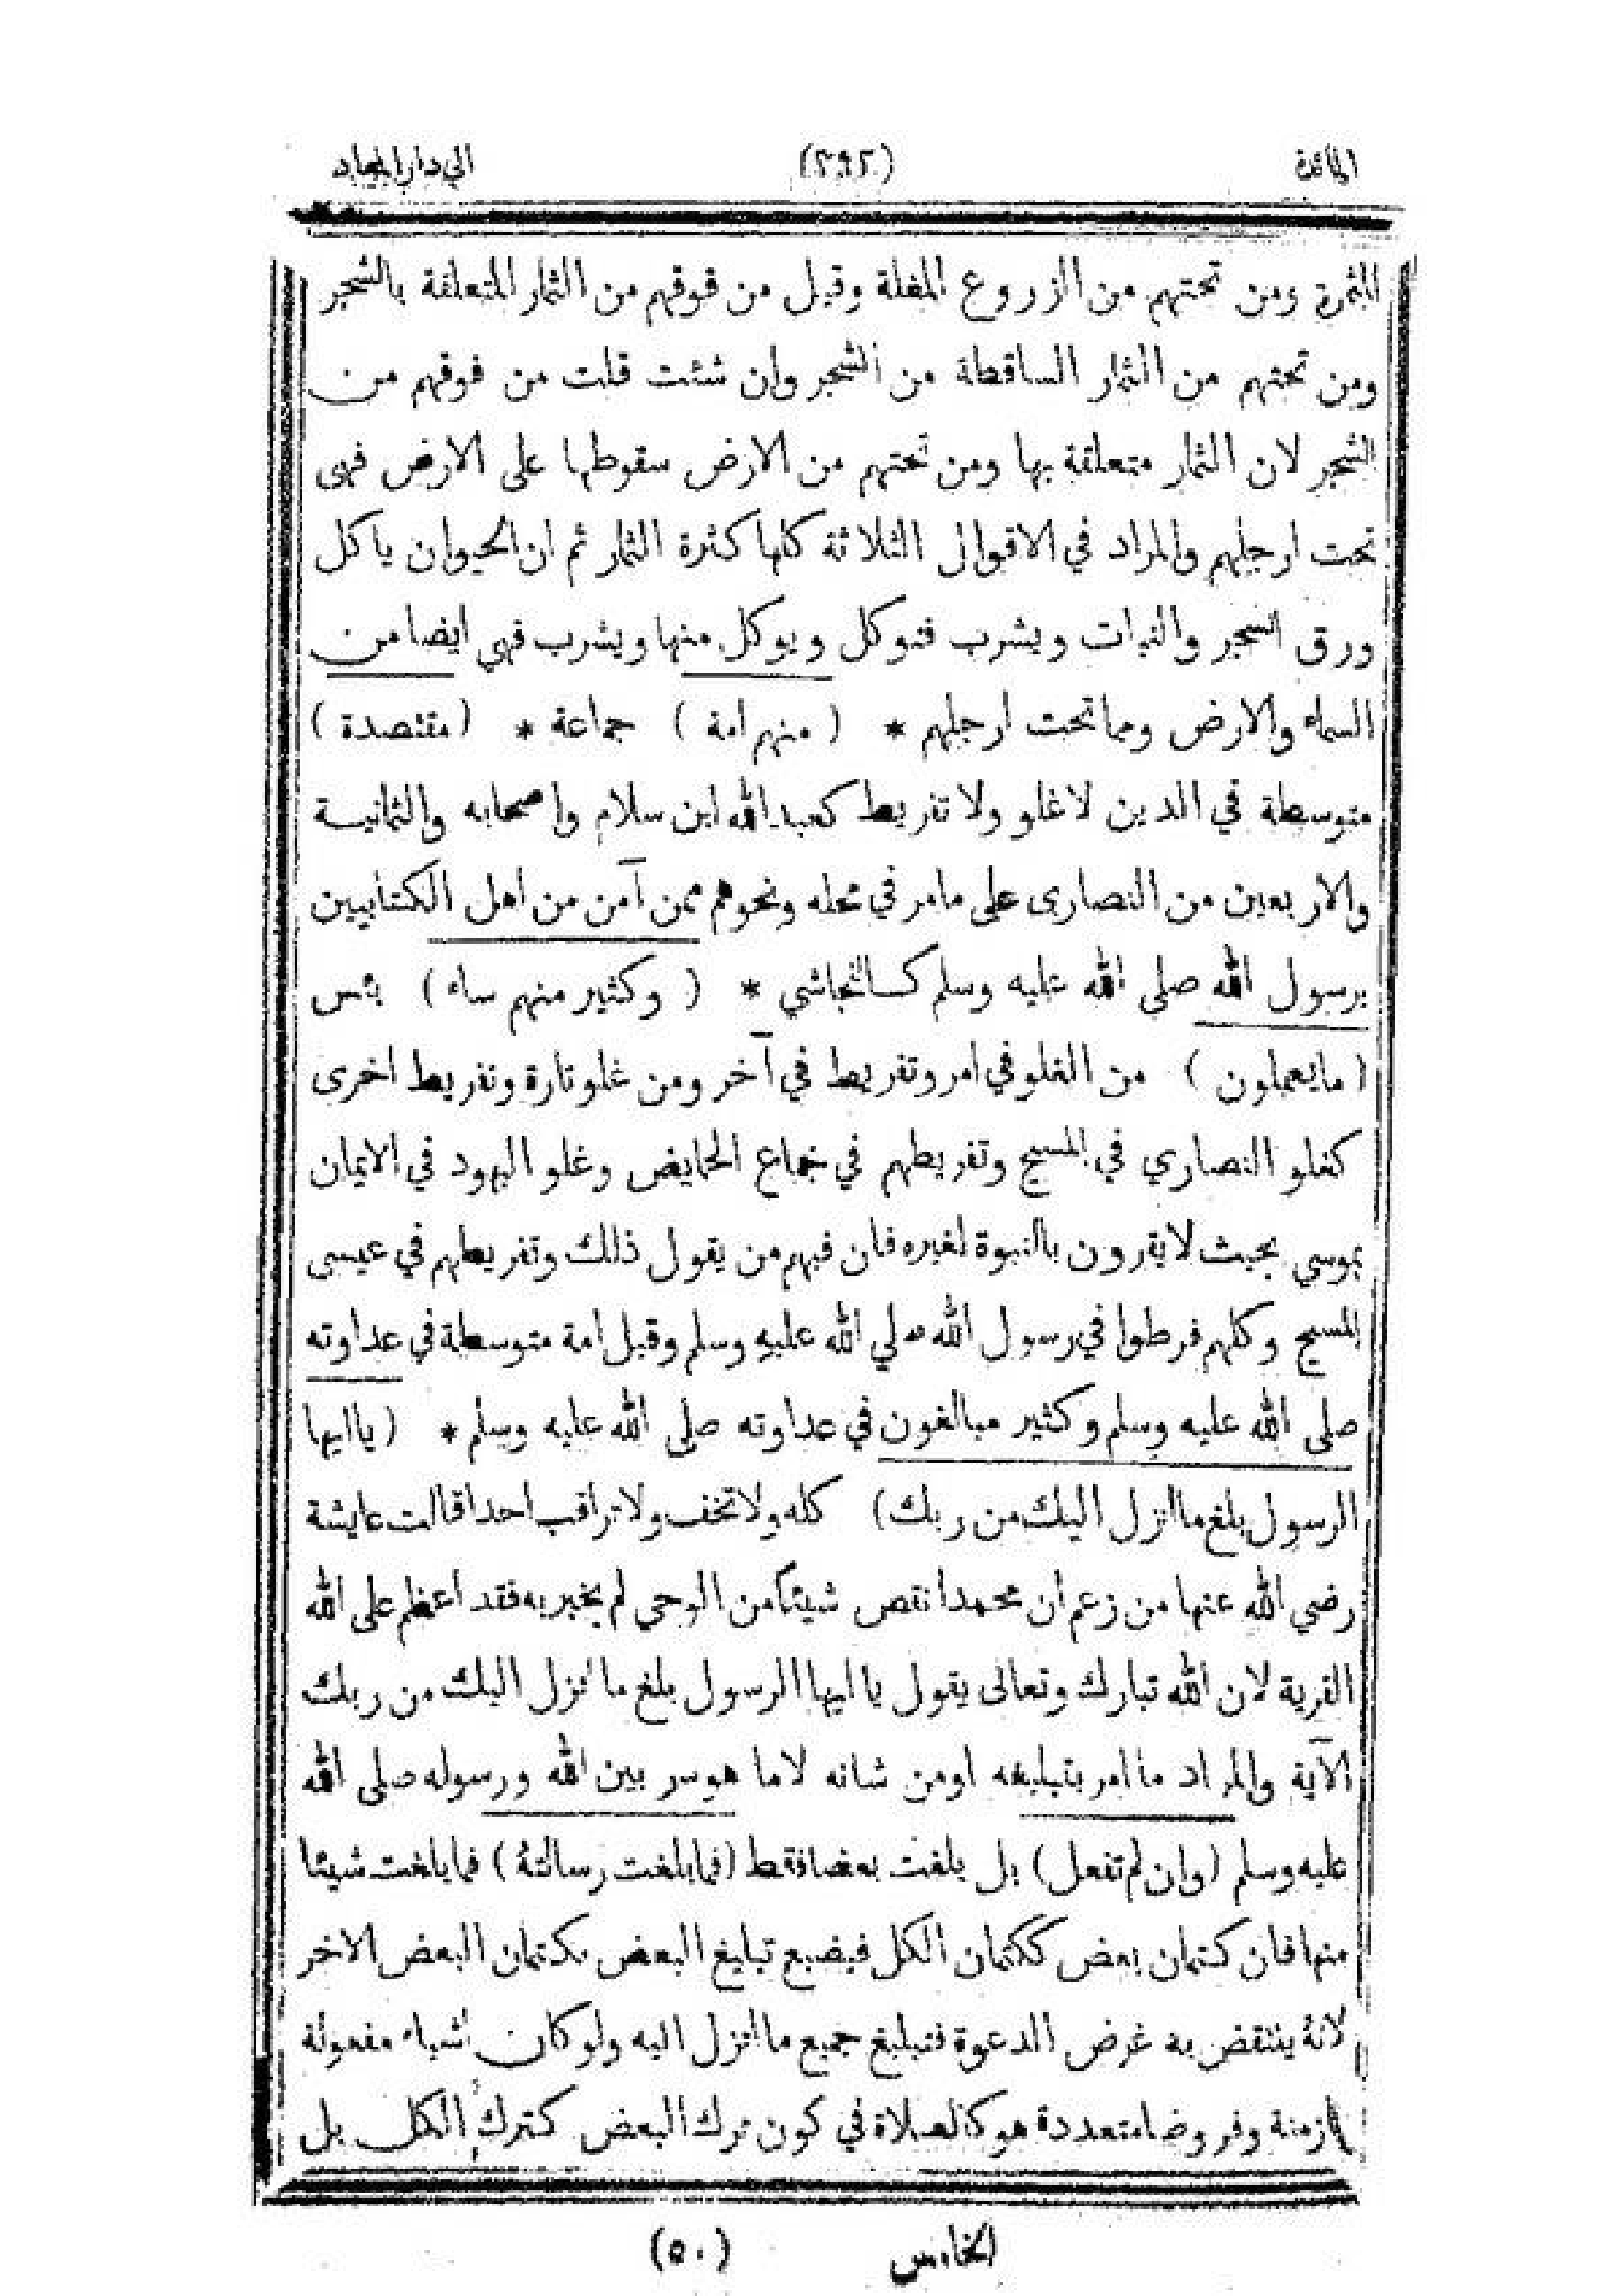 المائدة (٣٩٢) الى دار المعاد
المثمرة ومن تحتهم من الزروع المغلة وقيل من فوقهم من الثمار المتعلقة بالشجر
ومن تحتهم من الثمار الساقطة من الشجر وان شئت قلت من فوقهم من
الشجر لان الثمار متعلقة بها ومن تحتهم من الارض سقوطها على الارض فهى
تحت ارجلهم والمراد في الاقوال الثلاثة كلها كثرة الثمار ثم ان الحيوان ياكل
ورق الشجر والنبات ويشرب فتوكل ويوكل منها ويشرب فهي ايضا من
السماء والارض ومما تحت ارجلهم * (منهم امة) جماعة * (مقتصدة)
متوسطة في الدين لا غلو ولا تفريط كعبد الله ابن سلام واصحابه والثمانية
والاربعين من النصارى على ما مر في محله ونحوهم ممن آمن من اهل الكتابيين
برسول الله صلى الله عليه وسلم كالنجاشي * (وكثير منهم ساء) بئس
(ما يعملون) من الغلو في امر وتفريط في آخر ومن غلو تارة وتفريط اخرى
كغلو النصاري في المسيح وتفريطهم في جماع الحايض وغلو اليهود في الايمان
بموسي بحيث لا يقرون بالنبوة لغيره فان فيهم من يقول ذلك وتفريطهم في عيسى
المسيح وكلهم فرطوا في رسول الله صلي الله عليه وسلم وقيل امة متوسطة في عداوته
صلى الله عليه وسلم وكثير مبالغون في عداوته صلى الله عليه وسلم * (يا ايها
الرسول بلغ ما انزل اليك من ربك) كله ولا تخف ولا تراقب احدا قالت عايشة
رضي الله عنها من زعم ان محمدا نقص شيئا من الوحي لم يخبر به فقد أعظم على الله
الفرية لان الله تبارك وتعالى يقول يا ايها الرسول بلغ ما انزل اليك من ربك
الآية والمراد ما امر بتبليغه او من شانه لا ما هو سر بين الله ورسوله صلى الله
عليه وسلم (وان لم تفعل) بل بلغت بعضا فقط (فما بلغت رسالته) فما بلغت شيئا
منها فان كتمان بعض ككتمان الكل فيضيع تبليغ البعض بكتمان البعض الاخر
لانه ينتقض به غرض الدعوة فتبليغ جميع ما انزل اليه ولو كان اشياء مفعولة
لازمنة وفروضا متعددة هو كالصلاة في كون ترك البعض كترك الكل بل
الخامس (٥٠)